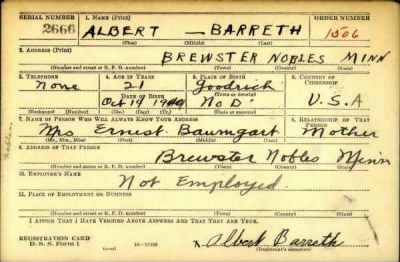 SERIAL NUMBER 1. NAME (Print) ORDER NUMBER
2666 ALBERT — BARRETH 1506
(First) (Middle) (Last)
2. ADDRESS (Print)
BREWSTER NOBLES MINN
(Number and street or R. F. D. number) (Town) (County) (State)
3. TELEPHONE 4. AGE IN YEARS 5. PLACE OF BIRTH 6. COUNTRY OF CITIZENSHIP
None 21 Goodrich
DATE OF BIRTH (Town or county)
Oct 19 No D. U.S.A
(Exchange) (Number) (Mo.) (Day) (Yr.) (State or country)
7. NAME OF PERSON WHO WILL ALWAYS KNOW YOUR ADDRESS 8. RELATIONSHIP OF THAT PERSON
Mrs Ernest Baumgart Mother
(Mr., Mrs., Miss) (First) (Middle) (Last)
9. ADDRESS OF THAT PERSON
Brewster Nobles Minn
(Number and street or R. F. D. number) (Town) (County) (State)
10. EMPLOYER'S NAME
Not Employed.
11. PLACE OF EMPLOYMENT OR BUSINESS
(Number and street or R. F. D. number) (Town) (County) (State)
I AFFIRM THAT I HAVE VERIFIED ABOVE ANSWERS AND THAT THEY ARE TRUE.
REGISTRATION CARD
D. S. S. Form 1 Albert Barreth
(Registrant's signature)